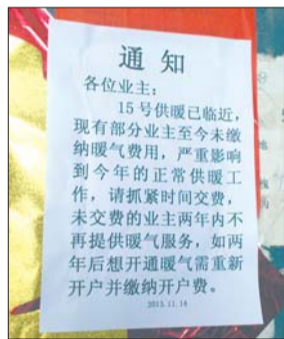 通知
各位业主:
15号供暖已临近,
现有部分业主至今未缴
纳暖气费用，严重影响
到今年的正常供暖工
作，请抓紧时间交费，
未交费的业主两年内不
再提供暖气服务，如两
年后想开通暖气需重新
开户并缴纳开户费。
2013.11.14